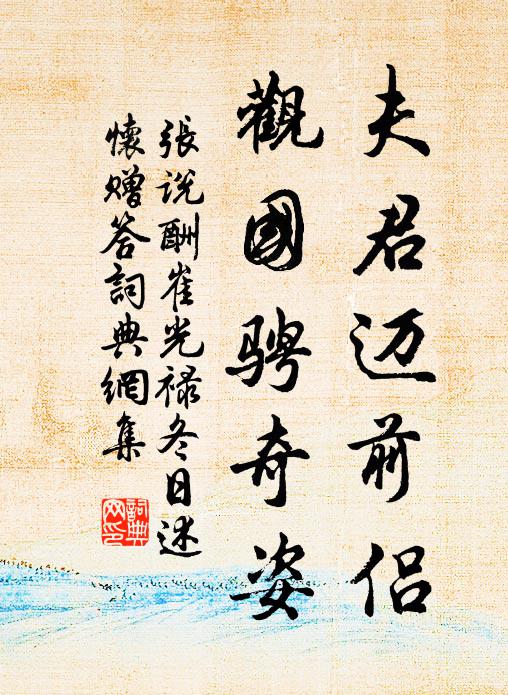 夫君迈前侣
觀國騁奇姿
張说酬崔光禄冬日述
懷贈答詞典網集
詞典
网印